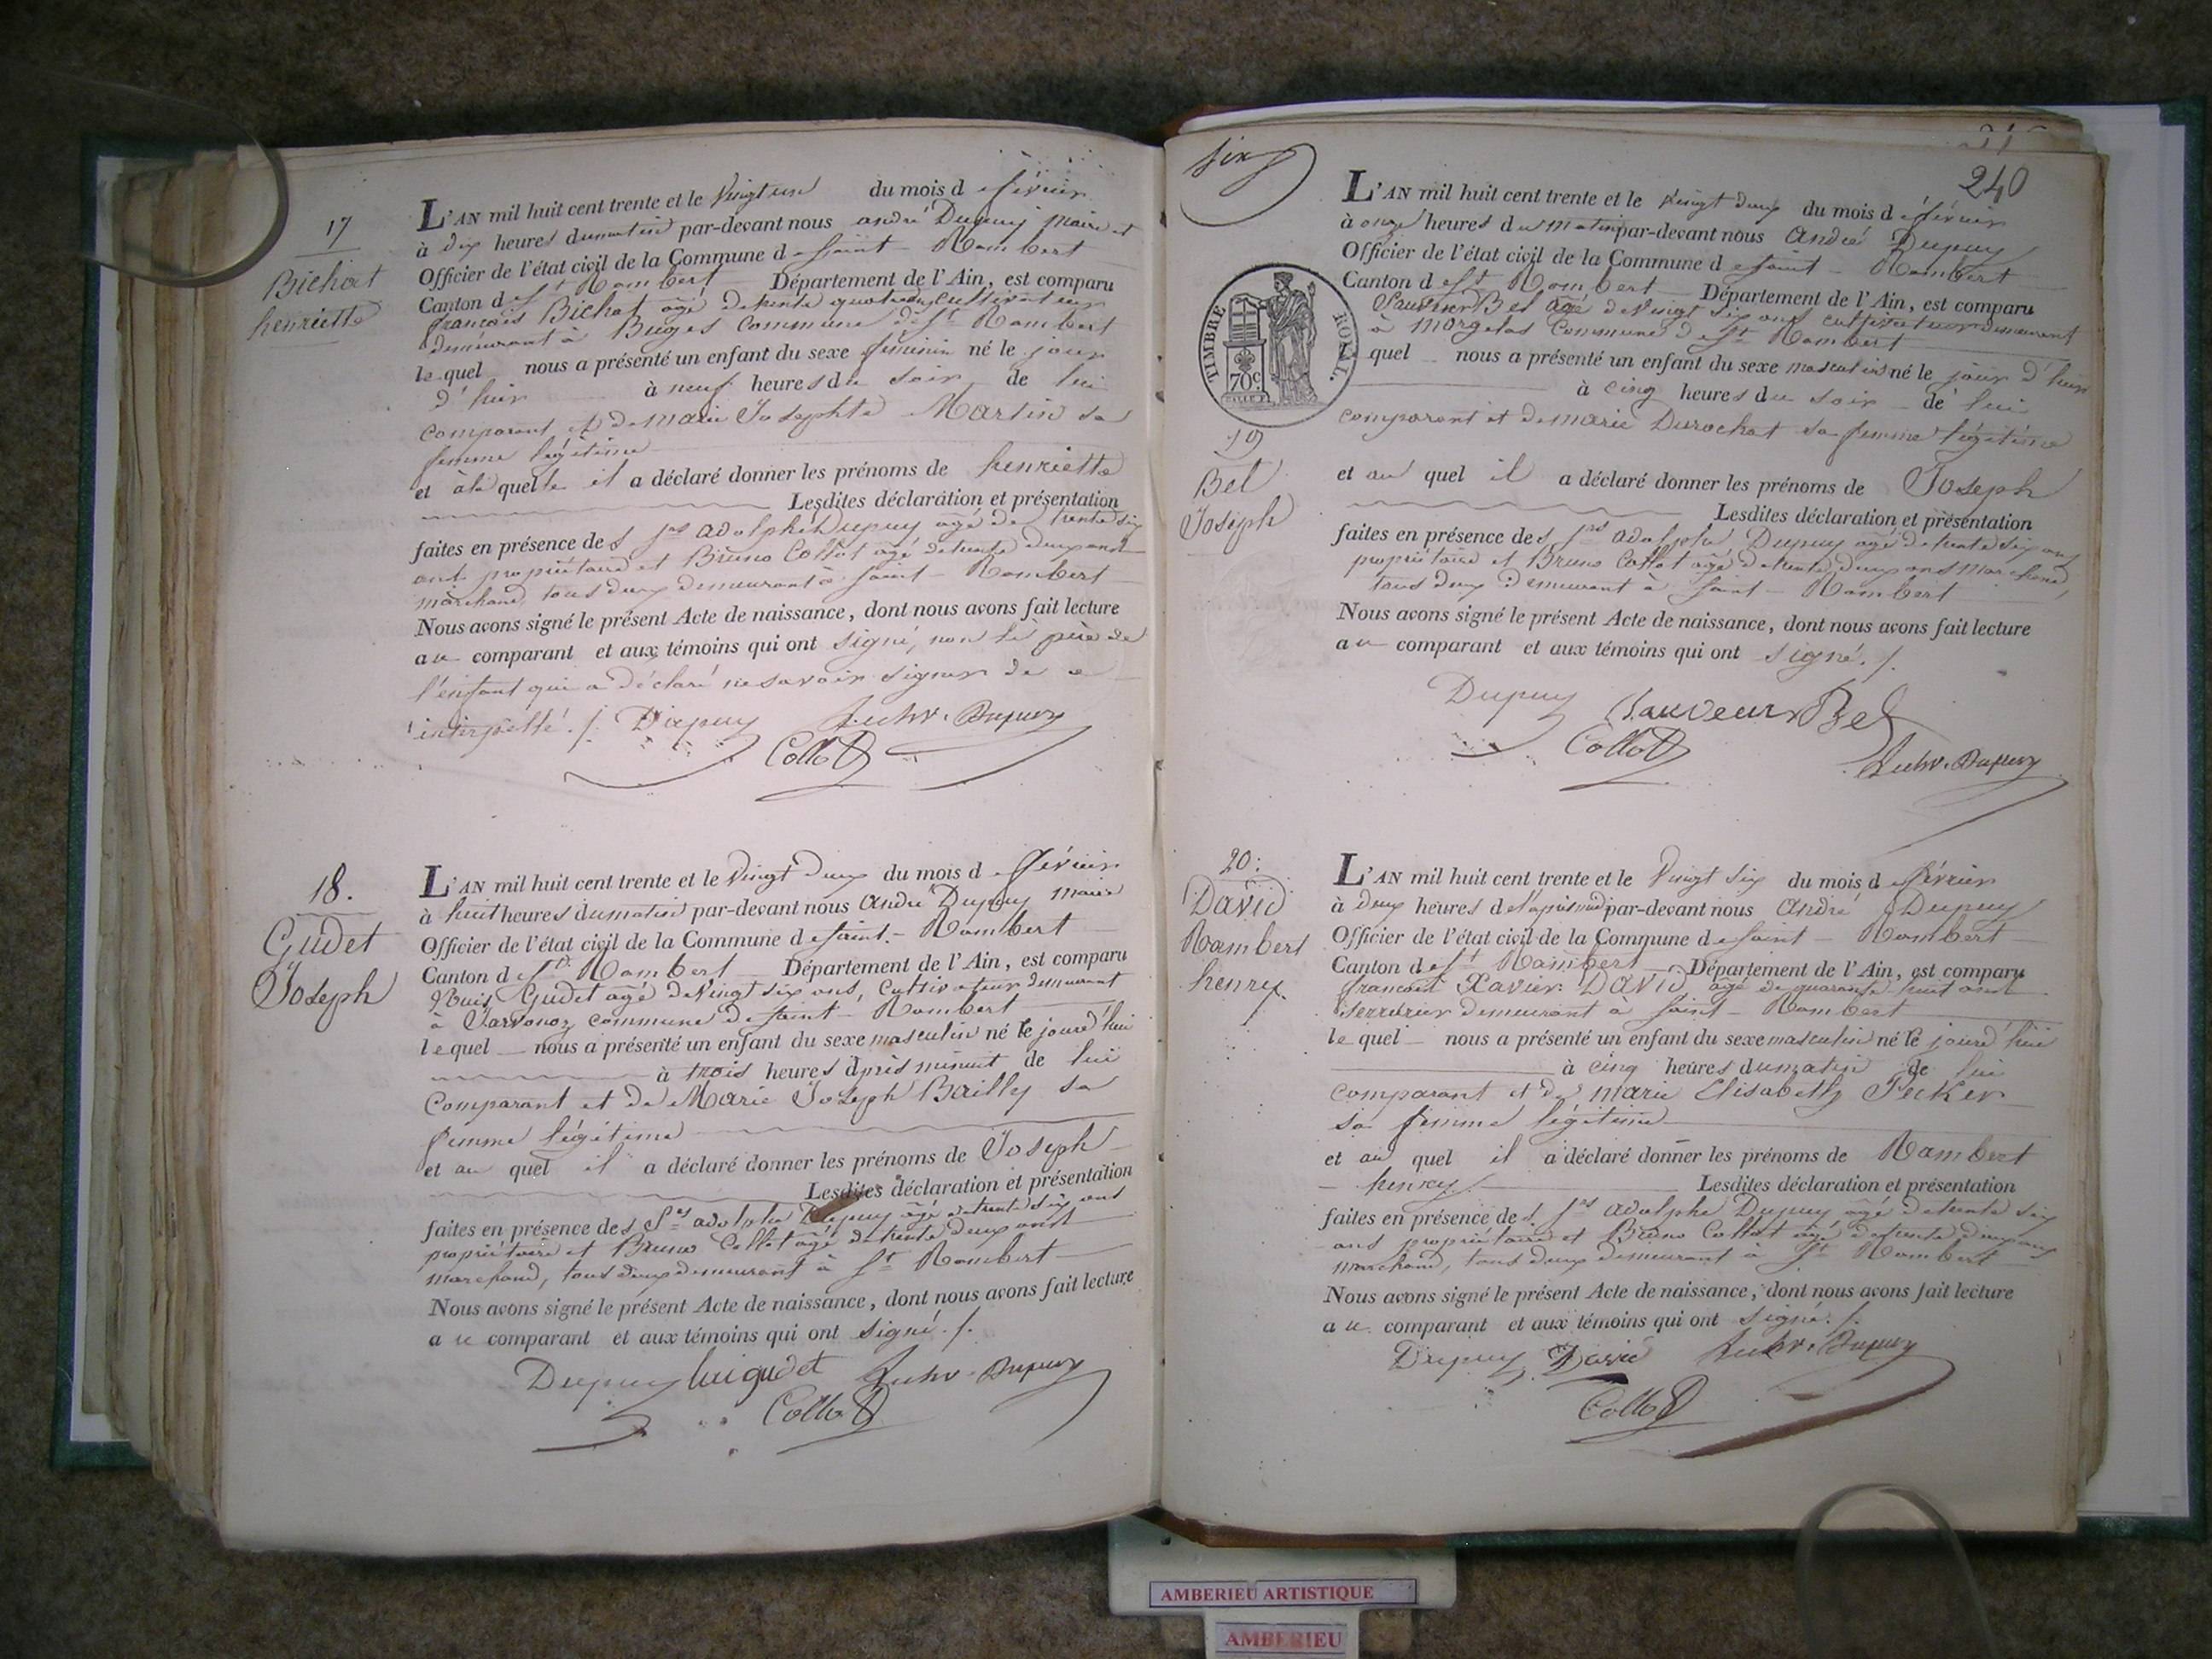 17
Bichat
henriette
L'AN mil huit cent trente et le Vingt un du mois de février
à dix heures du matin par-devant nous andré Dupuy maire et
Officier de l'état civil de la Commune de Saint-Rambert
Canton de St Rambert Département de l'Ain, est comparu
françois Bichat agé de trente quatre ans cultivateur
demeurant à Buges commune de St Rambert
lequel nous a présenté un enfant du sexe féminin né le jour
d'hier à neuf heures du soir de lui
comparant et de marie Josephte Martin sa
femme légitime
et à la quelle il a déclaré donner les prénoms de henriette
Lesdites déclaration et présentation
faites en présence des Srs adolphe Dupuy agé de trente six
ans propriétaire et Bruno Collot agé de trente deux ans
marchand, tous deux demeurant à Saint-Rambert
Nous avons signé le présent Acte de naissance, dont nous avons fait lecture
au comparant et aux témoins qui ont signé, non le père de
l'enfant qui a déclaré ne savoir signer de ce
interpellé ./. Dupuy Dupuy
Collot
18.
Gudet
Joseph
L'AN mil huit cent trente et le Vingt deux du mois de février
à huit heures du matin par-devant nous André Dupuy maire
Officier de l'état civil de la Commune de Saint-Rambert
Canton de St Rambert Département de l'Ain, est comparu
Louis Gudet agé de Vingt six ans, Cultivateur demeurant
à commune de Saint-Rambert
lequel nous a présenté un enfant du sexe masculin né le jourd'hui
à trois heures après minuit de lui
Comparant et de Marie Joseph Bailly sa
femme légitime
et au quel il a déclaré donner les prénoms de Joseph
Lesdites déclaration et présentation
faites en présence des Srs adolphe Dupuy agé de trente six ans
propriétaire et Bruno Collot agé de trente deux ans
marchand, tous deux demeurant à St Rambert
Nous avons signé le présent Acte de naissance, dont nous avons fait lecture
au comparant et aux témoins qui ont signé ./.
Dupuy lui gudet Dupuy
Collot
six
240
TIMBRE ROYAL
70c
19
Bel
Joseph
L'AN mil huit cent trente et le Vingt deux du mois de février
à onze heures du matin par-devant nous André Dupuy
Officier de l'état civil de la Commune de Saint-Rambert
Canton de St Rambert Département de l'Ain, est comparu
Sauveur Bel agé de Vingt six ans cultivateur demeurant
à morgelas Commune de St Rambert
quel nous a présenté un enfant du sexe masculin né le jour d'hier
à cinq heures du soir de lui
comparant et de marie Durochat sa femme légitime
et au quel il a déclaré donner les prénoms de Joseph
Lesdites déclaration et présentation
faites en présence des Srs adolphe Dupuy agé de trente six ans
propriétaire et Bruno Collot agé de trente deux ans marchand,
tous deux demeurant à Saint-Rambert
Nous avons signé le présent Acte de naissance, dont nous avons fait lecture
au comparant et aux témoins qui ont signé ./.
Dupuy Sauveur Bel
Collot Dupuy
20.
David
Rambert
henry.
L'AN mil huit cent trente et le Vingt six du mois de février
à deux heures de l'après midi par-devant nous André Dupuy
Officier de l'état civil de la Commune de Saint-Rambert
Canton de St Rambert Département de l'Ain, est comparu
françois Xavier DAVID agé de quarante huit ans
serrurier demeurant à Saint-Rambert
lequel nous a présenté un enfant du sexe masculin né le jourd'hui
à cinq heures du matin de lui
comparant et de marie Elisabeth Pecker
sa femme légitime
et au quel il a déclaré donner les prénoms de Rambert
henry. Lesdites déclaration et présentation
faites en présence des Srs adolphe Dupuy agé de trente six
ans propriétaire et Bruno Collot agé de trente deux ans
marchand, tous deux demeurant à St Rambert
Nous avons signé le présent Acte de naissance, dont nous avons fait lecture
au comparant et aux témoins qui ont signé ./.
Dupuy David Dupuy
Collot
AMBERIEU ARTISTIQUE
AMBERIEU